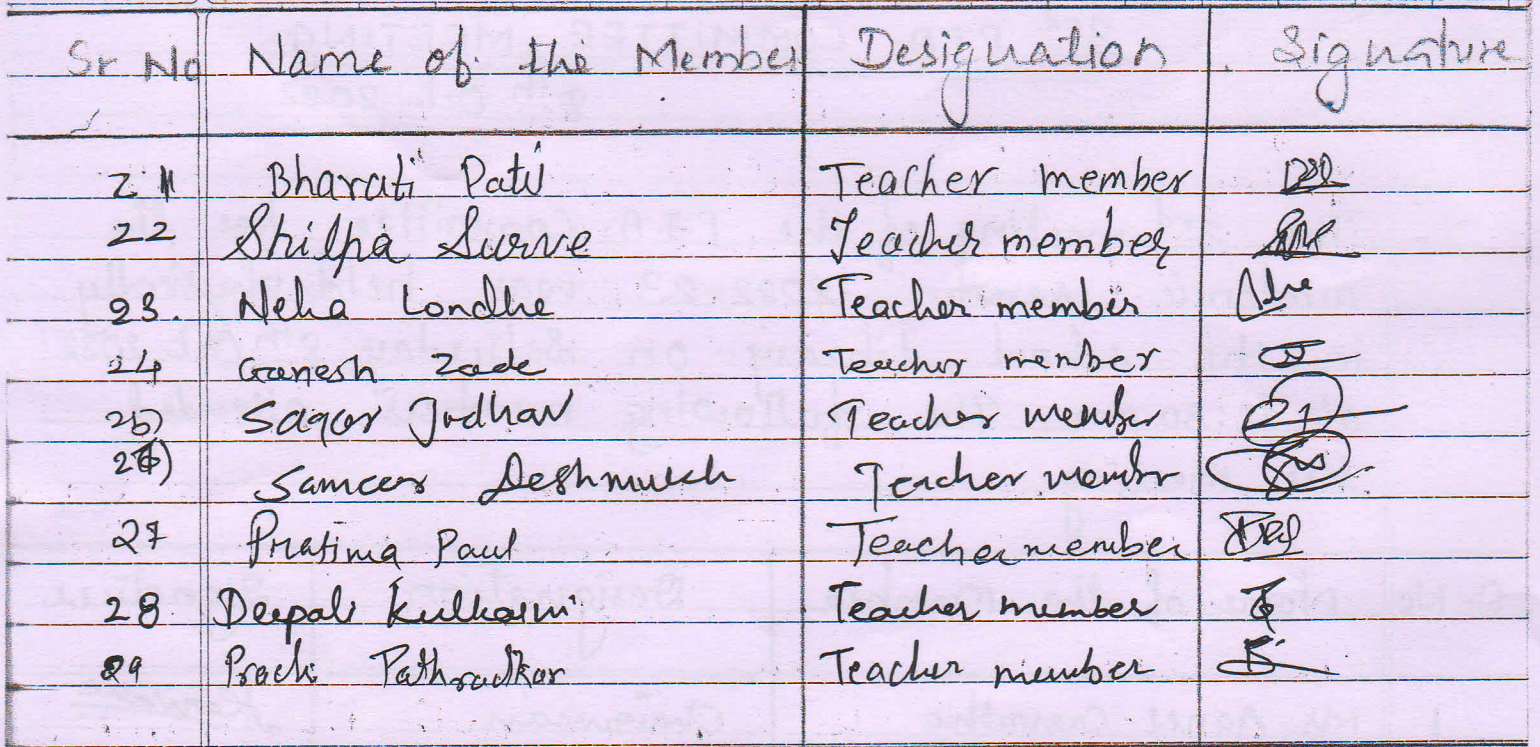 Sr No Name of the Member Designation Signature
21 Bharati Patil Teacher member
22 Shilpa Surve Teacher member
23. Neha Londhe Teacher member
24 Ganesh Zade Teacher member
25) Sagar Jadhav Teacher member
26) Sameer Deshmukh Teacher member
27 Pratima Paul Teacher member
28 Deepali Kulkarni Teacher member
29 Prachi Pathradkar Teacher member